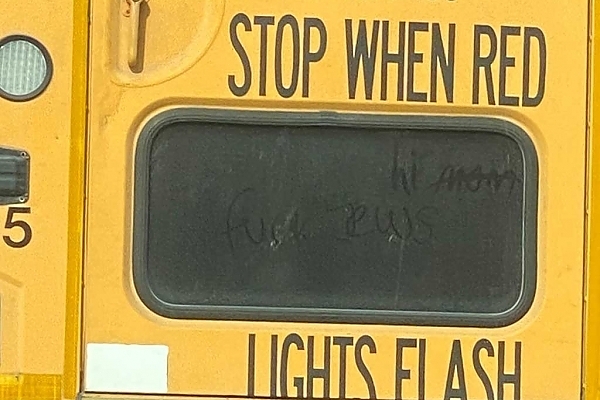 STOP WHEN RED
hi mom
fuck Jews
5
LIGHTS FLASH